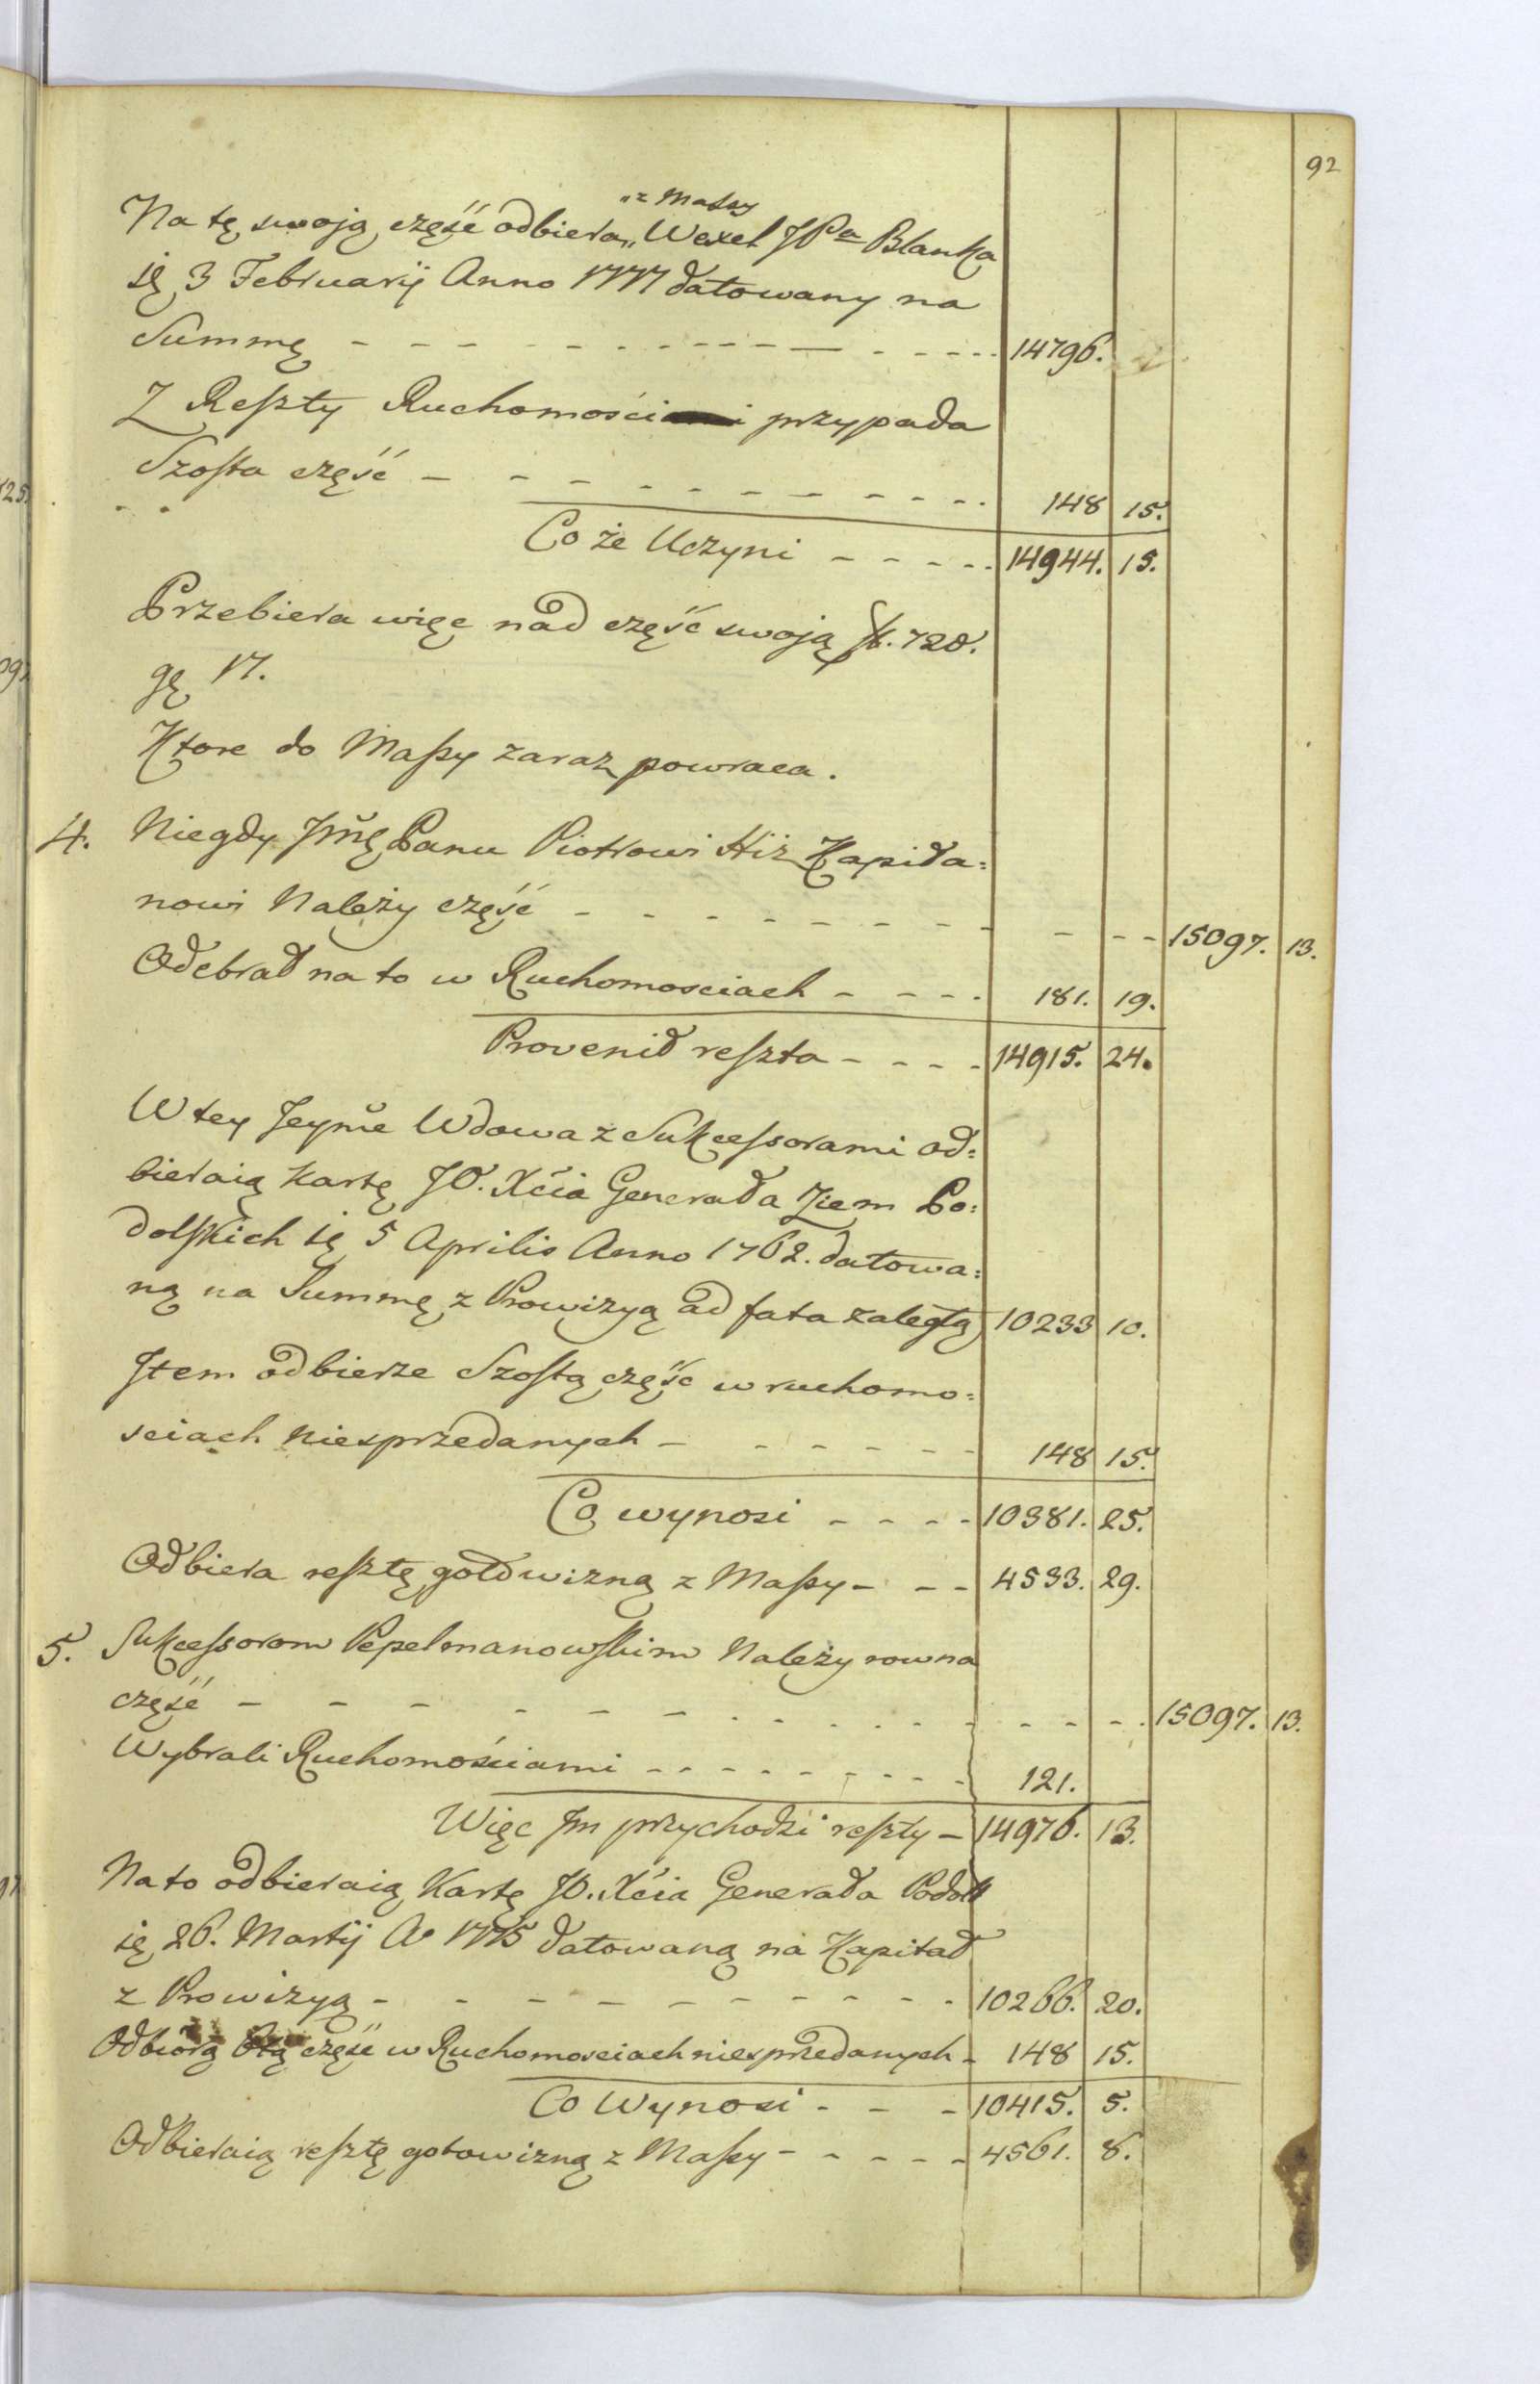 92
„z Massy
Na tę swoją część odbiera „ Wexel JPa Blanka
ię 3 Februarij Anno 1777 datowany na
Summę - - - - - - - - - - - - 14796.
Z Reszty Ruchomości przypada
Szosta część - - - - - - - - - - 148 15.
Co że Uczyni - - - - - 14944. 15.
Przebiera więc nad część swoją fł. 728.
gę 17.
Ktore do Massy zaraz powraca.
4. Niegdy Jmę Panu Piotrowi Hiż Kapita=
nowi Należy część - - - - - - - - - - - 15097. 13.
Odebrał na to w Ruchomosciach - - - - 181. 19.
Provenił reszta - - - - 14915. 24.
W tey Jeyme Wdowa z Sukcessorami od=
bieraią kartę JO. Xcia Generała Ziem Po=
dolskich ię 5 Aprilis Anno 1762. datowa=
ną na Summę z Prowizyą ad fata zaległą 10233 10.
Item odbierze Szostą część w ruchomo=
sciach niesprzedanych - - - - - - 148 15.
Co wynosi - - - - 10381. 25.
Odbiera resztę gotowizną z Massy - - - 4533. 29.
5. Sukcessorom Pepelmanowskim Należy rowna
część - - - - - - - - - - - - - - - 15097. 13.
Wybrali Ruchomościami - - - - - - - - - 121.
Więc Im przychodzi reszty - 14976. 13.
Na to odbieraią Kartę JO. Xcia Generała Podol
ię 26. Martij Ao 1775 datowaną na Kapitał
z Prowizyą - - - - - - - - - - 10266. 20.
Odbiorą 6tą część w Ruchomosciach niesprzedanych - 148 15.
Co Wynosi - - - 10415. 5.
Odbieraią resztę gotowizną z Massy - - - - - 4561. 8.